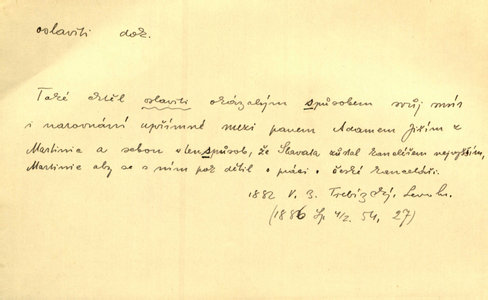 oslaviti dok.
Také chtěl oslaviti okázalým spůsobem svůj smír
i narovnání upřímné mezi panem Adamem Jiřím z
Martinic a sebou v ten spůsob, že Slavata zůstal kancléřem nejvyšším,
Martinic aby se s ním pak dělil o práci v české kanceláři.
1882 V. B. Třebízský, Levoh.
(1886 Sp. 4/2. 54, 27)